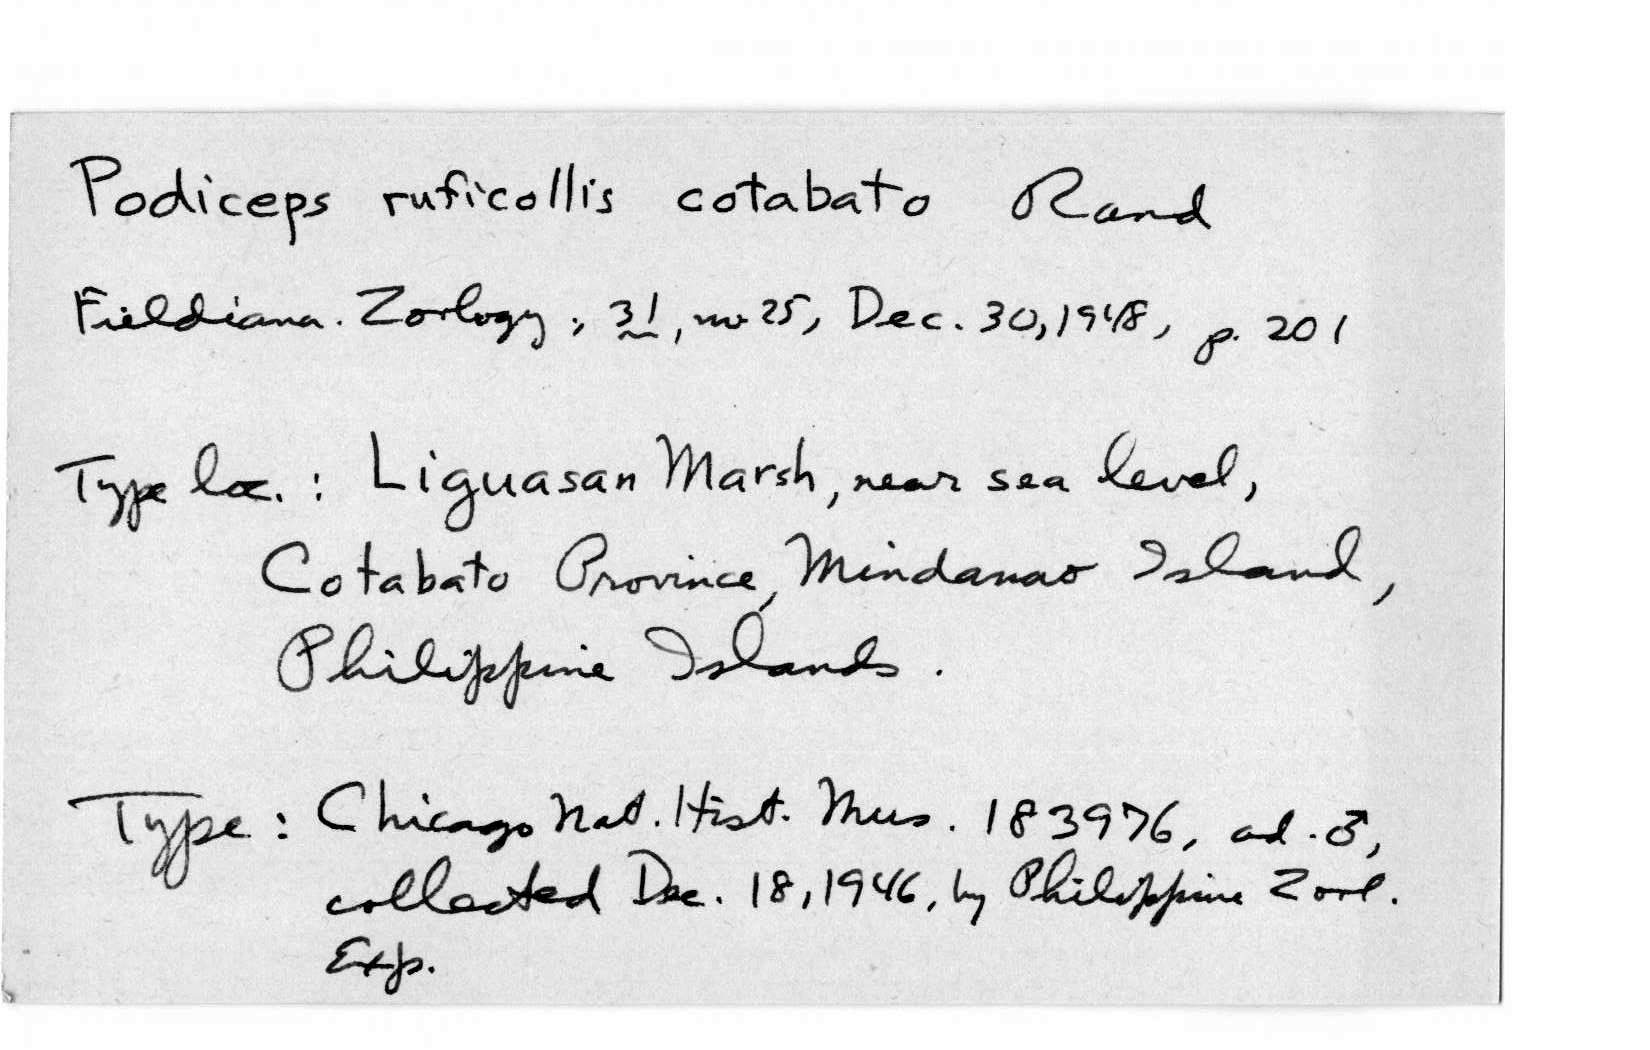 Podiceps ruficollis cotabato Rand
Fieldiana. Zoology, 31, no 25, Dec. 30, 1948, p. 201
Type loc. : Liguasan Marsh, near sea level,
Cotabato Province, Mindanao Island,
Philippine Islands.
Type : Chicago Nat. Hist. Mus. 183976, ad. ♂,
collected Dec. 18, 1946, by Philippine Zool.
Exp.